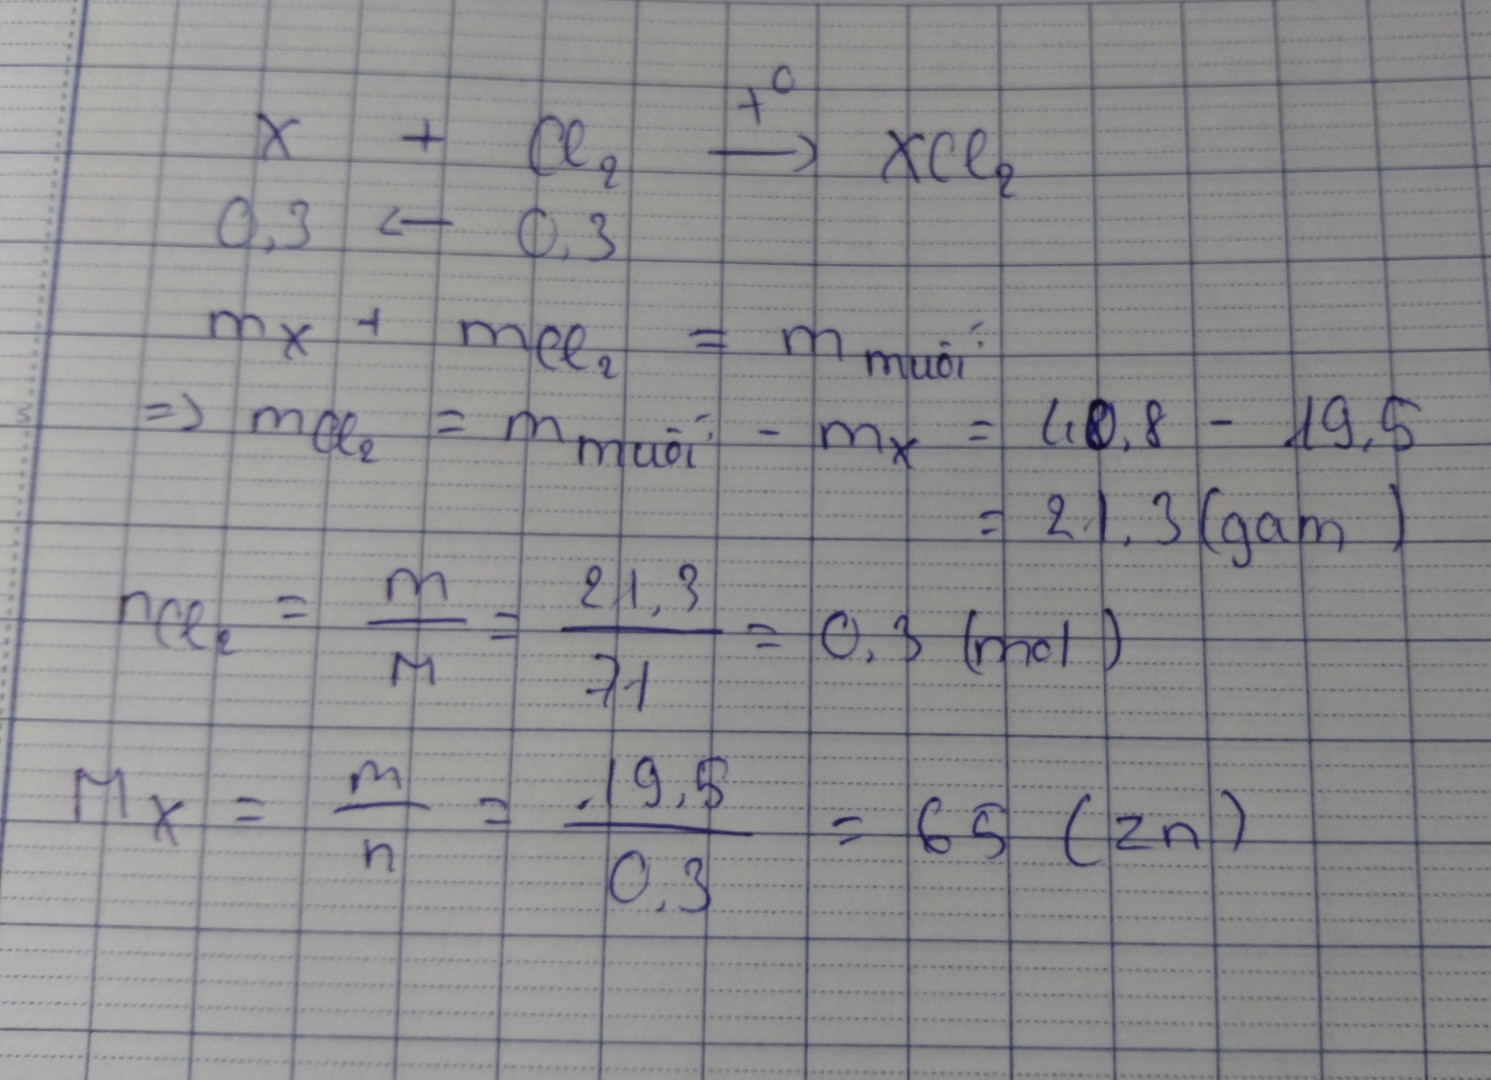 X + Cl₂ —t⁰→ XCl₂
0,3 ← 0,3
mX + mCl₂ = m muối
=> mCl₂ = m muối - mX = 40,8 - 19,5
= 21,3 (gam)
nCl₂ = m/M = 21,3/71 = 0,3 (mol)
MX = m/n = 19,5/0,3 = 65 (zn)